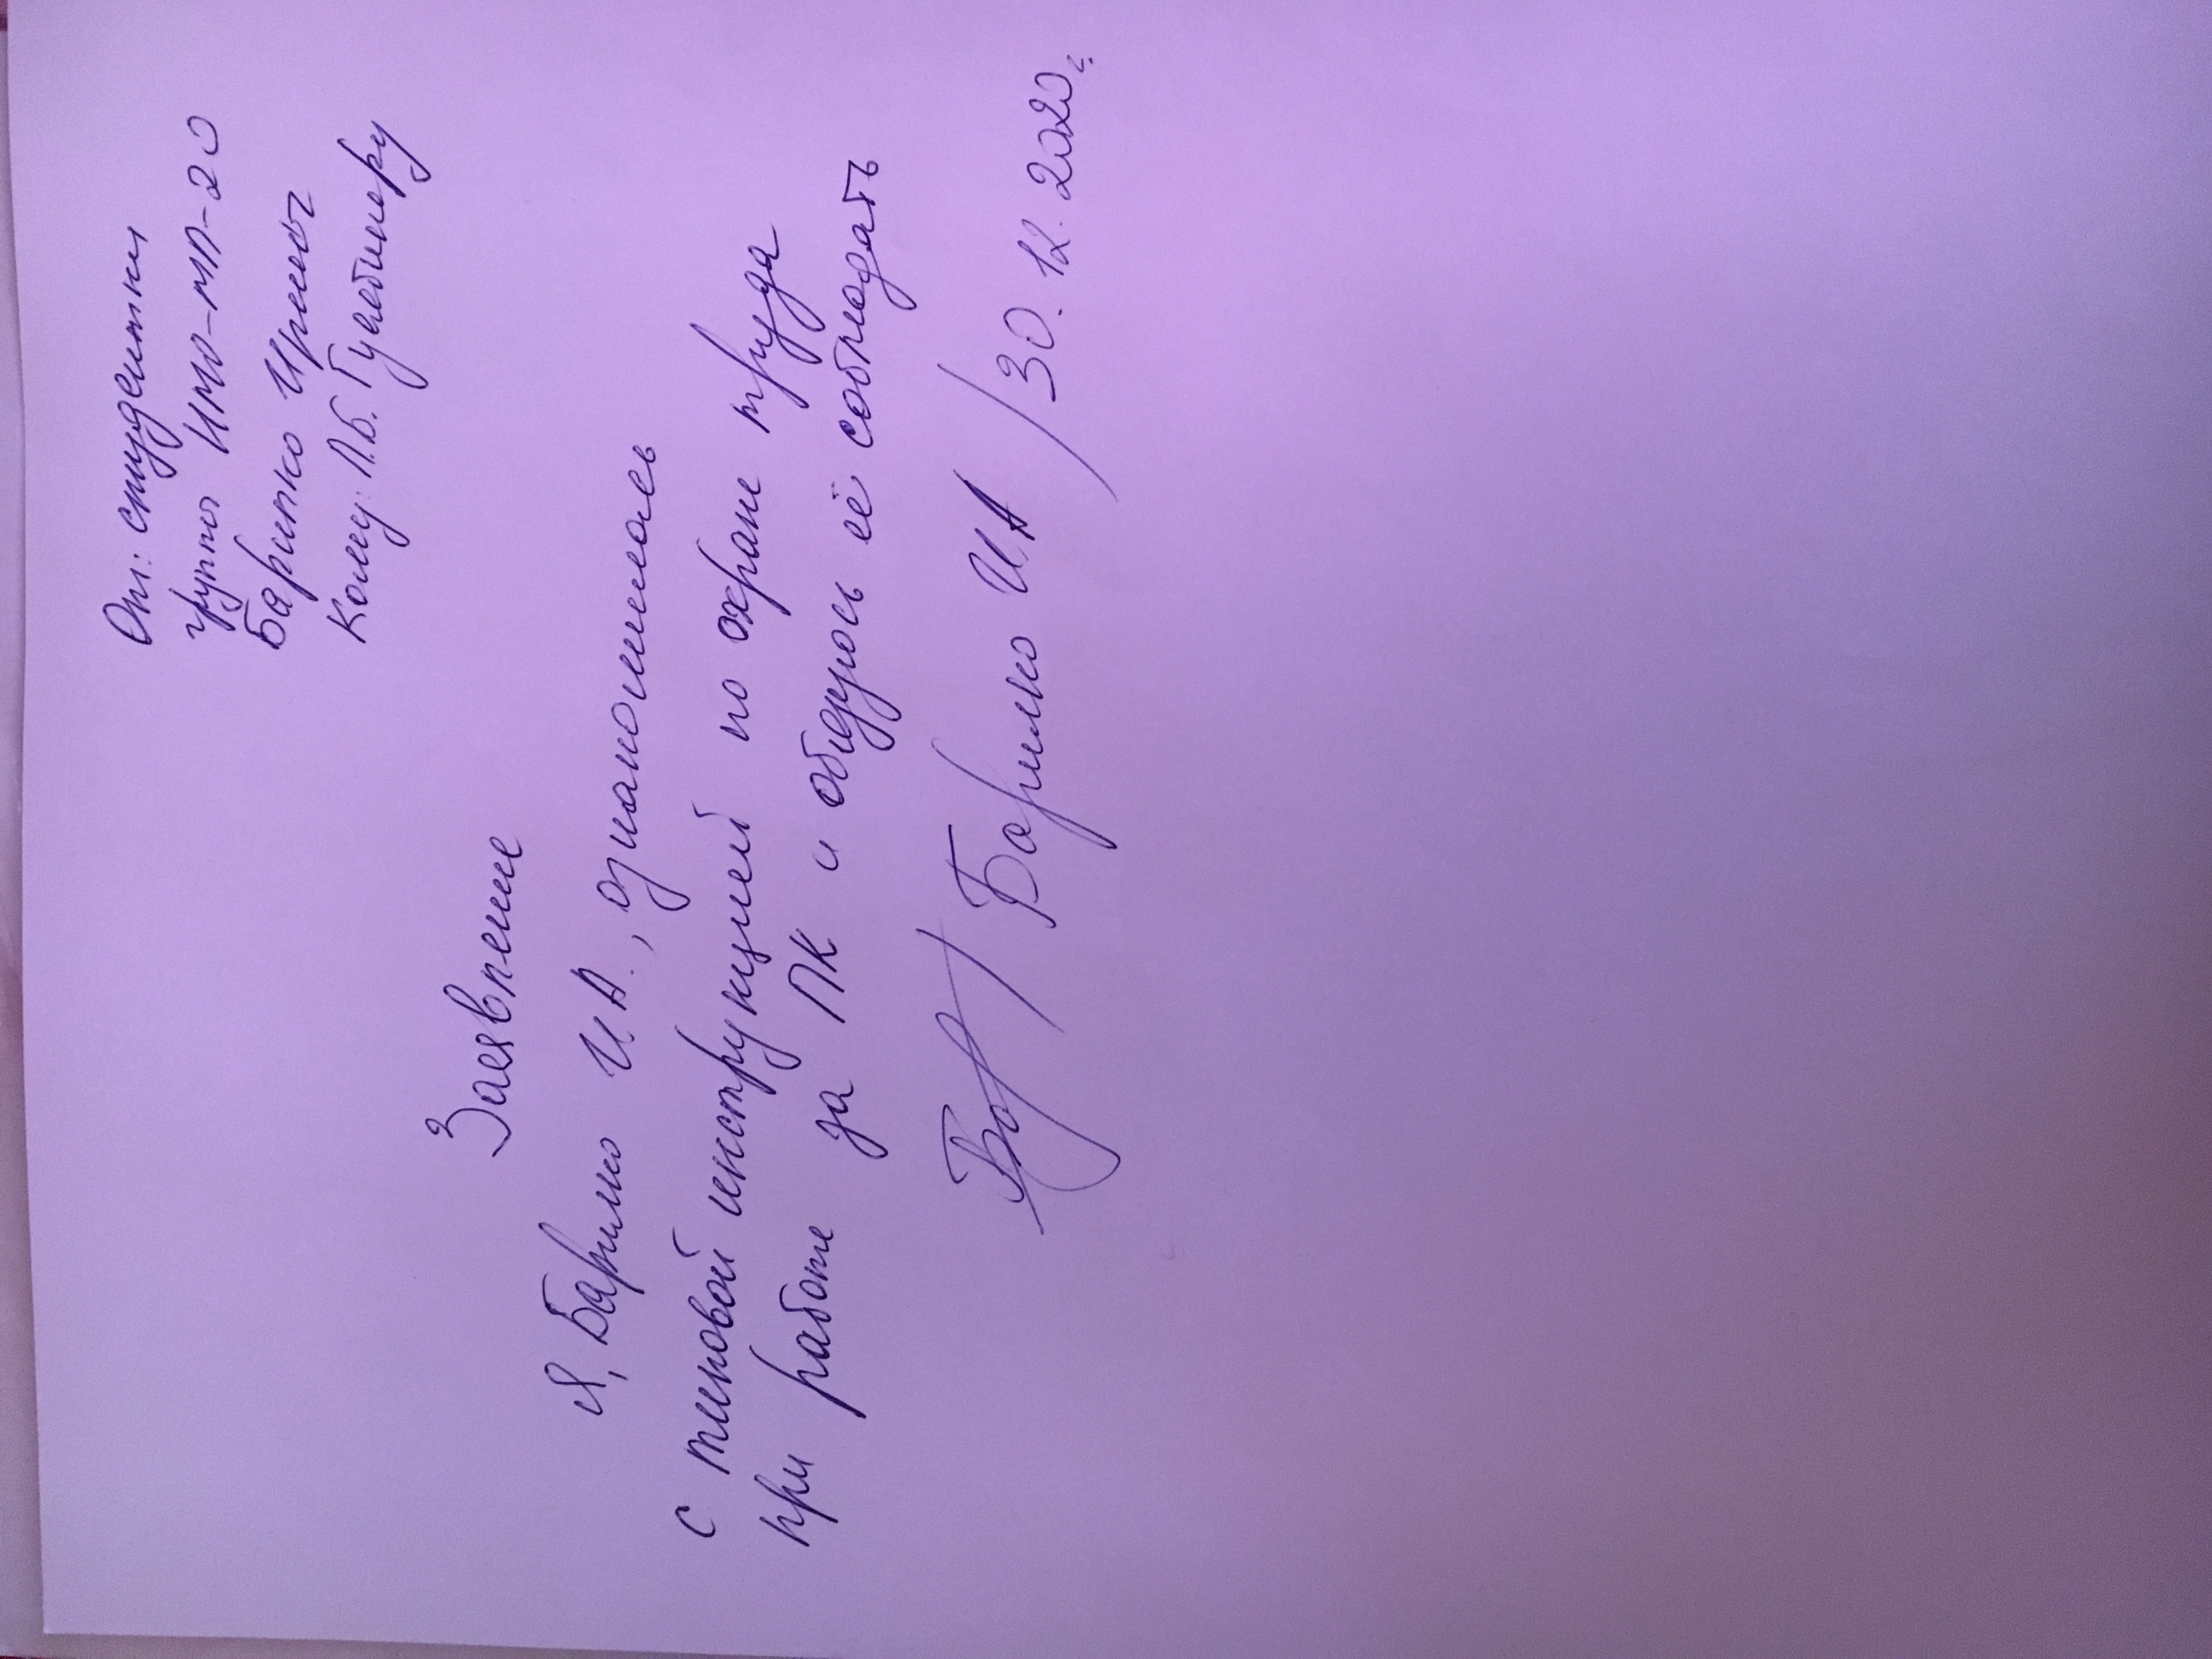 От: студентки
группы ИМО-МП-20
Барилко Ирины
Кому: Л.Б.
Заявление
Я, Барилко И.А., ознакомилась
с типовой инструкцией по охране труда
при работе за ПК и обязуюсь её соблюдать
/ Барилко И.А / 30.12.2020г.